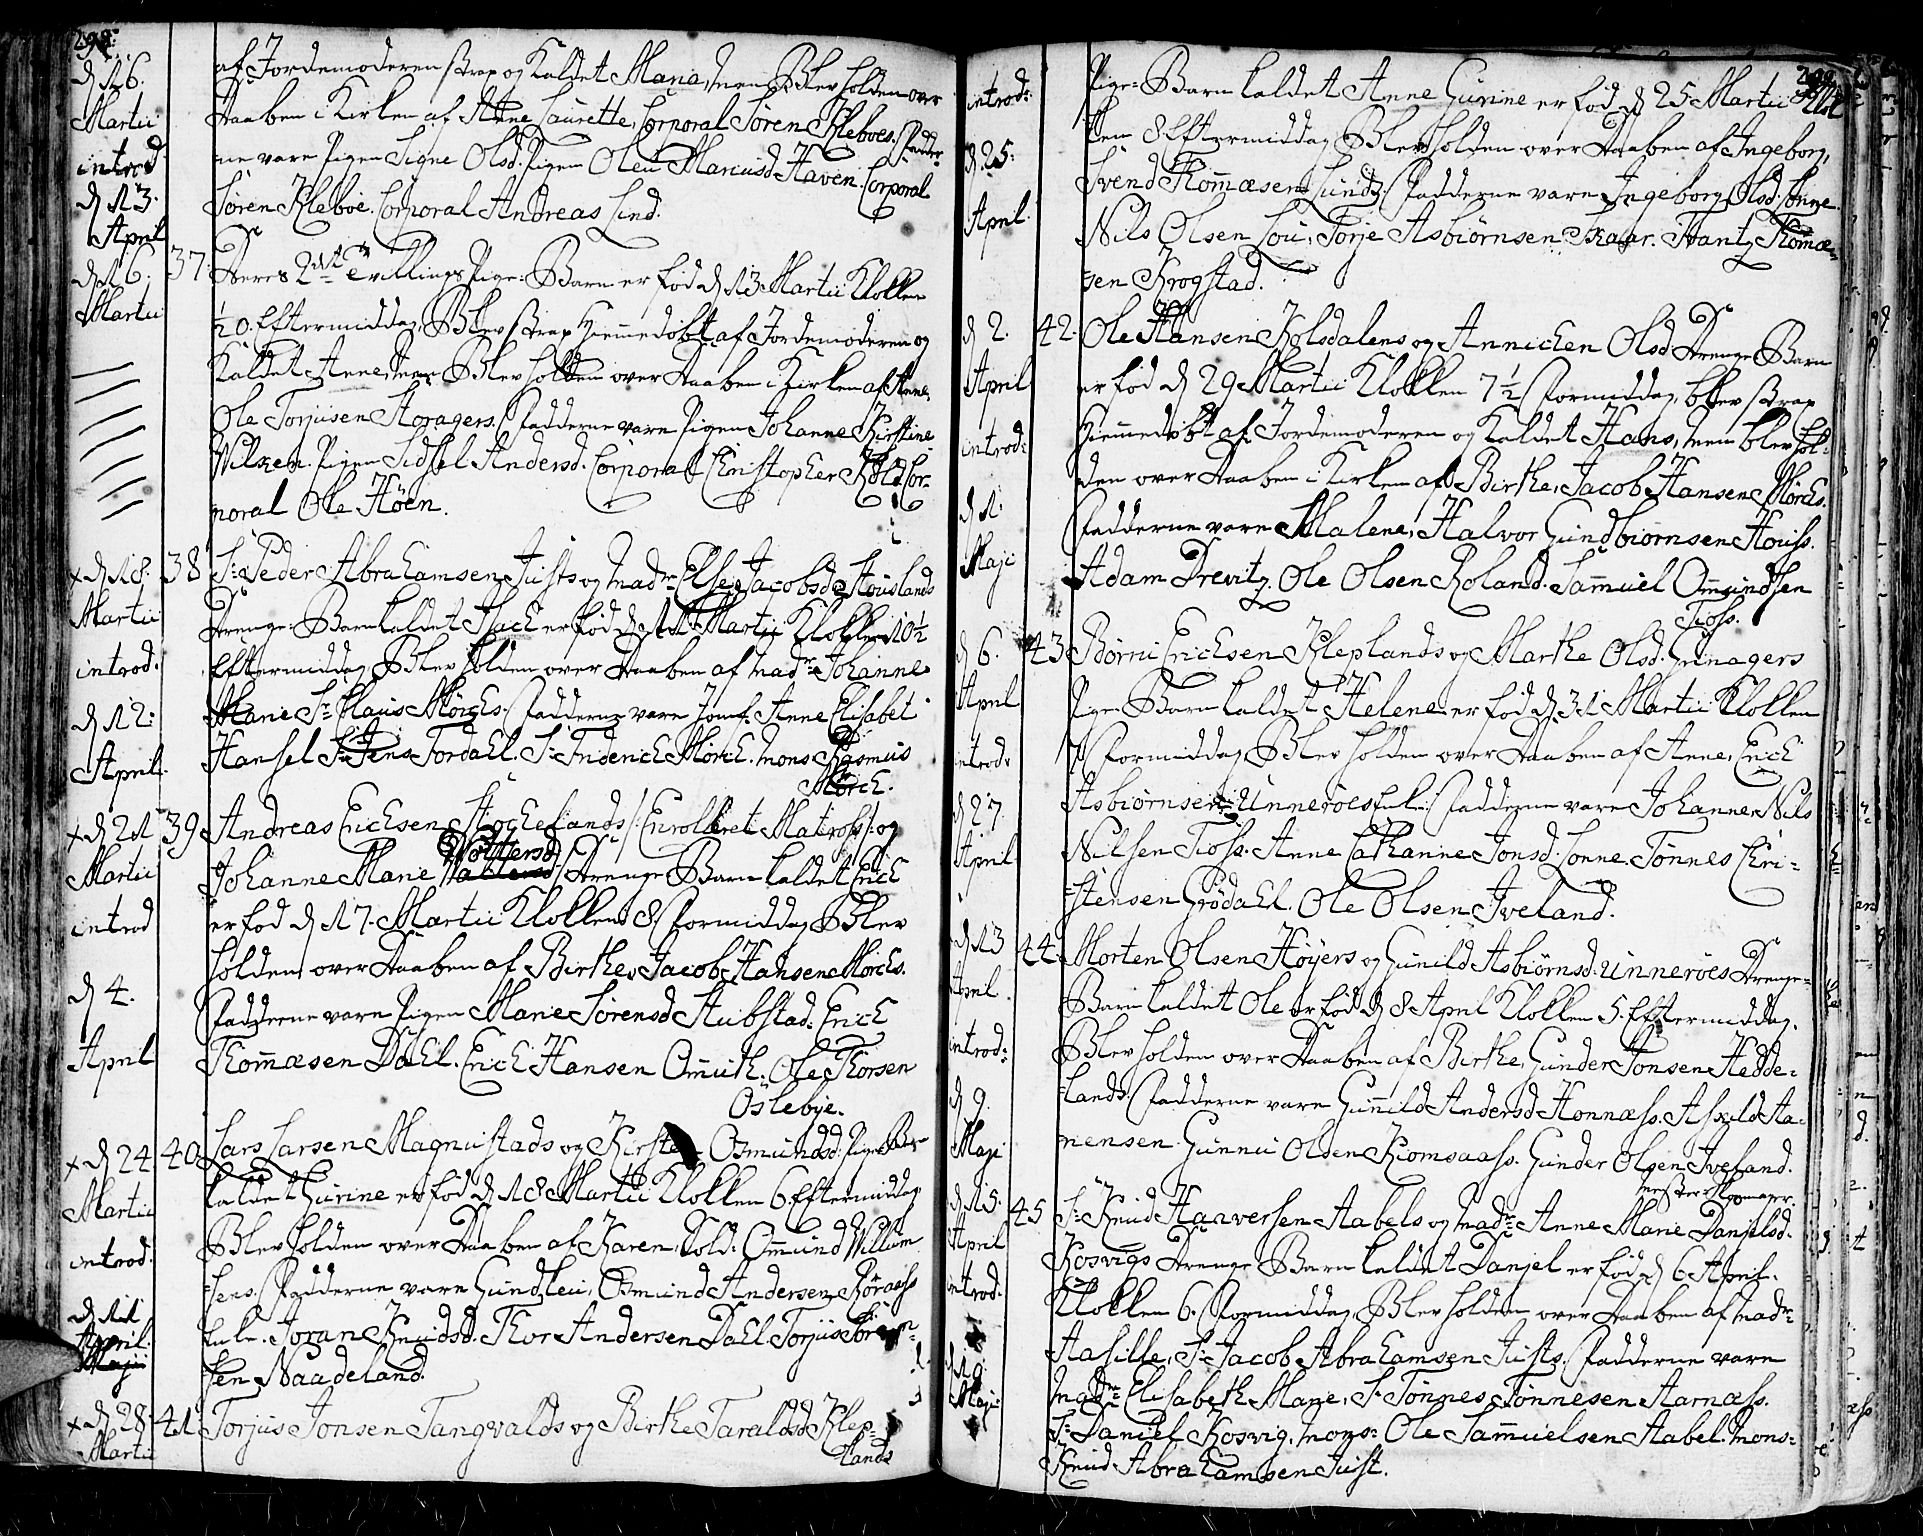 298.
d 16.
Martii
introd
d 13.
April
af Jordemoderen strax og Kaldet Maria, men Blev holden over
Daaben i Kirken af Anne Laurette, Corporal Søren Kleboes. Fadder-
ne vare Pigen Signe Olsd. Pigen Olen Mariusd Haven. Corporal
Søren Kleboe. Corporal Andreas Lind.
d 16. 37.
Martii
Deres 2den Tvillings Pige-Barn er fød d 13 Martii Klokken
½ 0. Eftermiddag, Blev strax Hiemmedøbt af Jordemoderen og
Kaldet Anne, men Blev holden over Daaben i Kirken af Anne,
Ole Torjusen Storagers. Fadderne vare Pigen Johanne Kirstine
Wilken. Pigen Sidsel Andersd. Corporal Christopher Kold. Cor-
poral Ole Høen.
+ d 18. 38
Martii
introd.
d 12.
April.
Sr. Peder Abrahamsen Justs og Madme Else Jacobsd Houslands
Drenge-Barn kaldet Isach er fød d 11 Martii Klokken 10½
Eftermiddag, Blev holden over Daaben af Madme Johanne
Marie Sr. Claus Mørchs. Fadderne vare Jomf. Anne Elisabet
Hansel Sr. Jens Fordahl. Sr. Friderich Mørch. Mons. Rasmus
Mørch.
+ d 21 39
Martii
introd
d 4.
April
Andreas Erichsen Stochelands /: Enrolleret Matros :/ og
Wolfersd
Johanne Marie Drenge Barn kaldet Erich
er fød d 17. Martii Klokken 8 Formiddag, Blev
holden over Daaben af Birthe, Jacob Hansen Mørchs.
Fadderne vare Pigen Marie Sørensd Stubstad. Erich
Thommæsen Dahl. Erich Hansen Omuth. Ole Thorsen
Oslebye.
+ d 24 40
Martii
introd.
d 11
April.
Lars Larsen Magnustads og Kirsten Osmundsd. Pige-Barn
kaldet Gurine er fød d 18 Martii Klokken 6. Eftermiddag
Blev holden over Daaben af Karen, Sold. Omund Willum-
sens. Fadderne vare Gundlei, Osmund Andersen Røraass
Joran Knudsd. Thor Andersen Dahl. Torjus
sen Naadeland.
+ d 28 41.
Martii
Torjus Jonsen Tangvalds og Birthe Taraldsd Klep-
lands
299.
introd:
d 25.
April.
Pige-Barn kaldet Anne Gurine er fød d 25 Martii Klok
ken 8 Eftermiddag, Blev holden over Daaben af Ingeborg,
Svend Thommæsen Lunds. Fadderne vare Ingeborg Olsd. Lønne.
Nils Olsen Lou, Torje Asbiørnsen Skaar. Hantz Thomæ-
sen Krogstad.
d 2. 42.
April
introd:
d 1.
Maji
Ole Hansen Kolsdalens og Annichen Olsd Drenge Barn
er fød d 29 Martii Klokken 7½ Formiddag, blev strax
Hiemmedøbt af Jordemoderen og Kaldet Hans, men blev hol-
den over Daaben i Kirken af Birthe, Jacob Hansen Mørchs.
Fadderne vare Malene, Halvor Gundbiørnsen Houss.
Adam Drevitz. Ole Olsen Roland. Sammuel Omundsen
Tioss.
d 6. 43
April
introd:
d 27
April
Børni Erichsen Kleplands og Marthe Olsd. Grunagers
Pige-Barn kaldet Helene er fød d 31 Martii Klokken
Formiddag, Blev holden over Daaben af Anne, Erich
Asbiørnsen Unnerøes Fadderne vare Johanne, Nils
Nilsen Tioss. Anne Cathanne Jonsd. Lonne. Tønnes Chri-
stensen Grødahl. Ole Olsen Iveland.
d 13 44.
April.
introd:
d 9.
Maji
Morten Olsen Høyers og Gunild Asbiørnsd. Unnerøes Drenge-
Barn kaldet Ole er fød d 8 April Klokken 5. Eftermiddag.
Blev holden over Daaben af Birthe, Gunder Tonsen Hedde-
lands. Fadderne vare Gunnild Andersd Honnæss. Askild Aa-
nensen. Gunnu Olden Komsaass. Gunder Olsen Iveland.
d 15. 45
April
introd.
d 19
Maji
Sr. Knud Haaversen Aabels og Madme Anne Marie Danjelsd.
Kosvigs Drenge Barn kaldet Danjel er fød d 6 April.
Klokken 6. Formiddag, Blev holden over Daaben af Madme
Aasille, Sr. Jacob Abrahamsen Justs. Fadderne vare
Madme Elisabeth Marie, Sr. Tønnes Tønnesen Aarnæss.
Sr. Daniel Kosvig, mons: Ole Sammuelsen Aabel. mons:
Knud Abrahamsen Just.